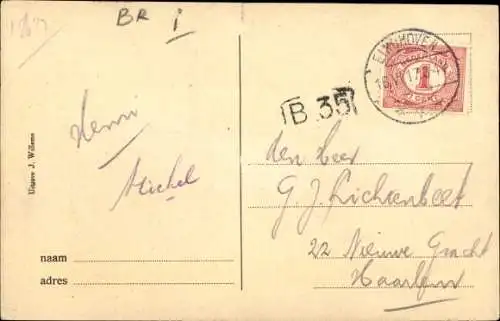 BR i
EINDHOVEN
1
B 35
Henri
Michel
den Heer
G. J. Lichtenbelt
22 Nieuwe Gracht
Haarlem
naam
adres
Uitgave J. Willems